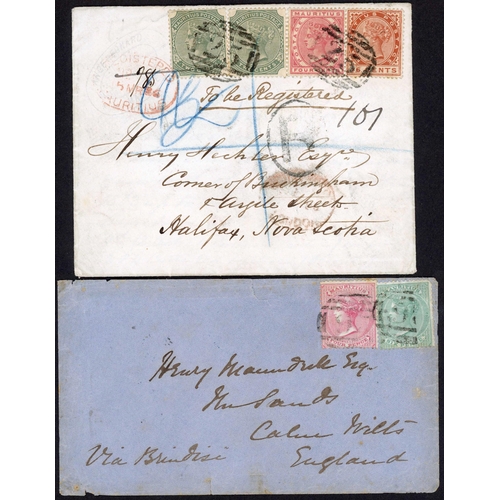 MAURITIUS
REGISTERED
MAURITIUS
CENTS
985
To be Registered
101
R
Henry Hechler Esqre
Corner of Buckingham
& Argyle Streets
Halifax, Nova Scotia
LONDON
MAURITIUS
Henry Maundrell Esq.
The Sands
Calne Wilts
Via Brindisi
England